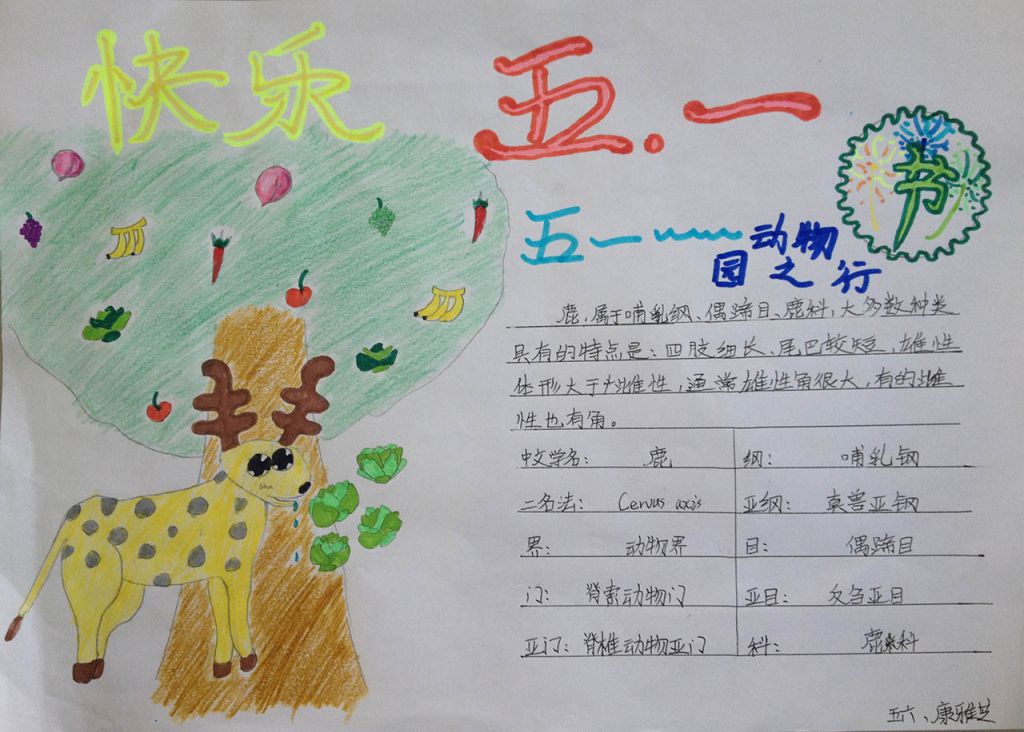 快乐 五.一 节
五一~~动物
园之行
鹿,属于哺乳纲、偶蹄目、鹿科,大多数种类
具有的特点是:四肢细长、尾巴较短,雄性
体形大于雌性,通常雄性角很大,有的雌
性也有角。
中文学名: 鹿 纲: 哺乳钢
二名法: Cervus axis 亚纲: 真兽亚钢
界: 动物界 目: 偶蹄目
门: 脊索动物门 亚目: 反刍亚目
亚门: 脊椎动物亚门 科: 鹿科
五六、康雅芝